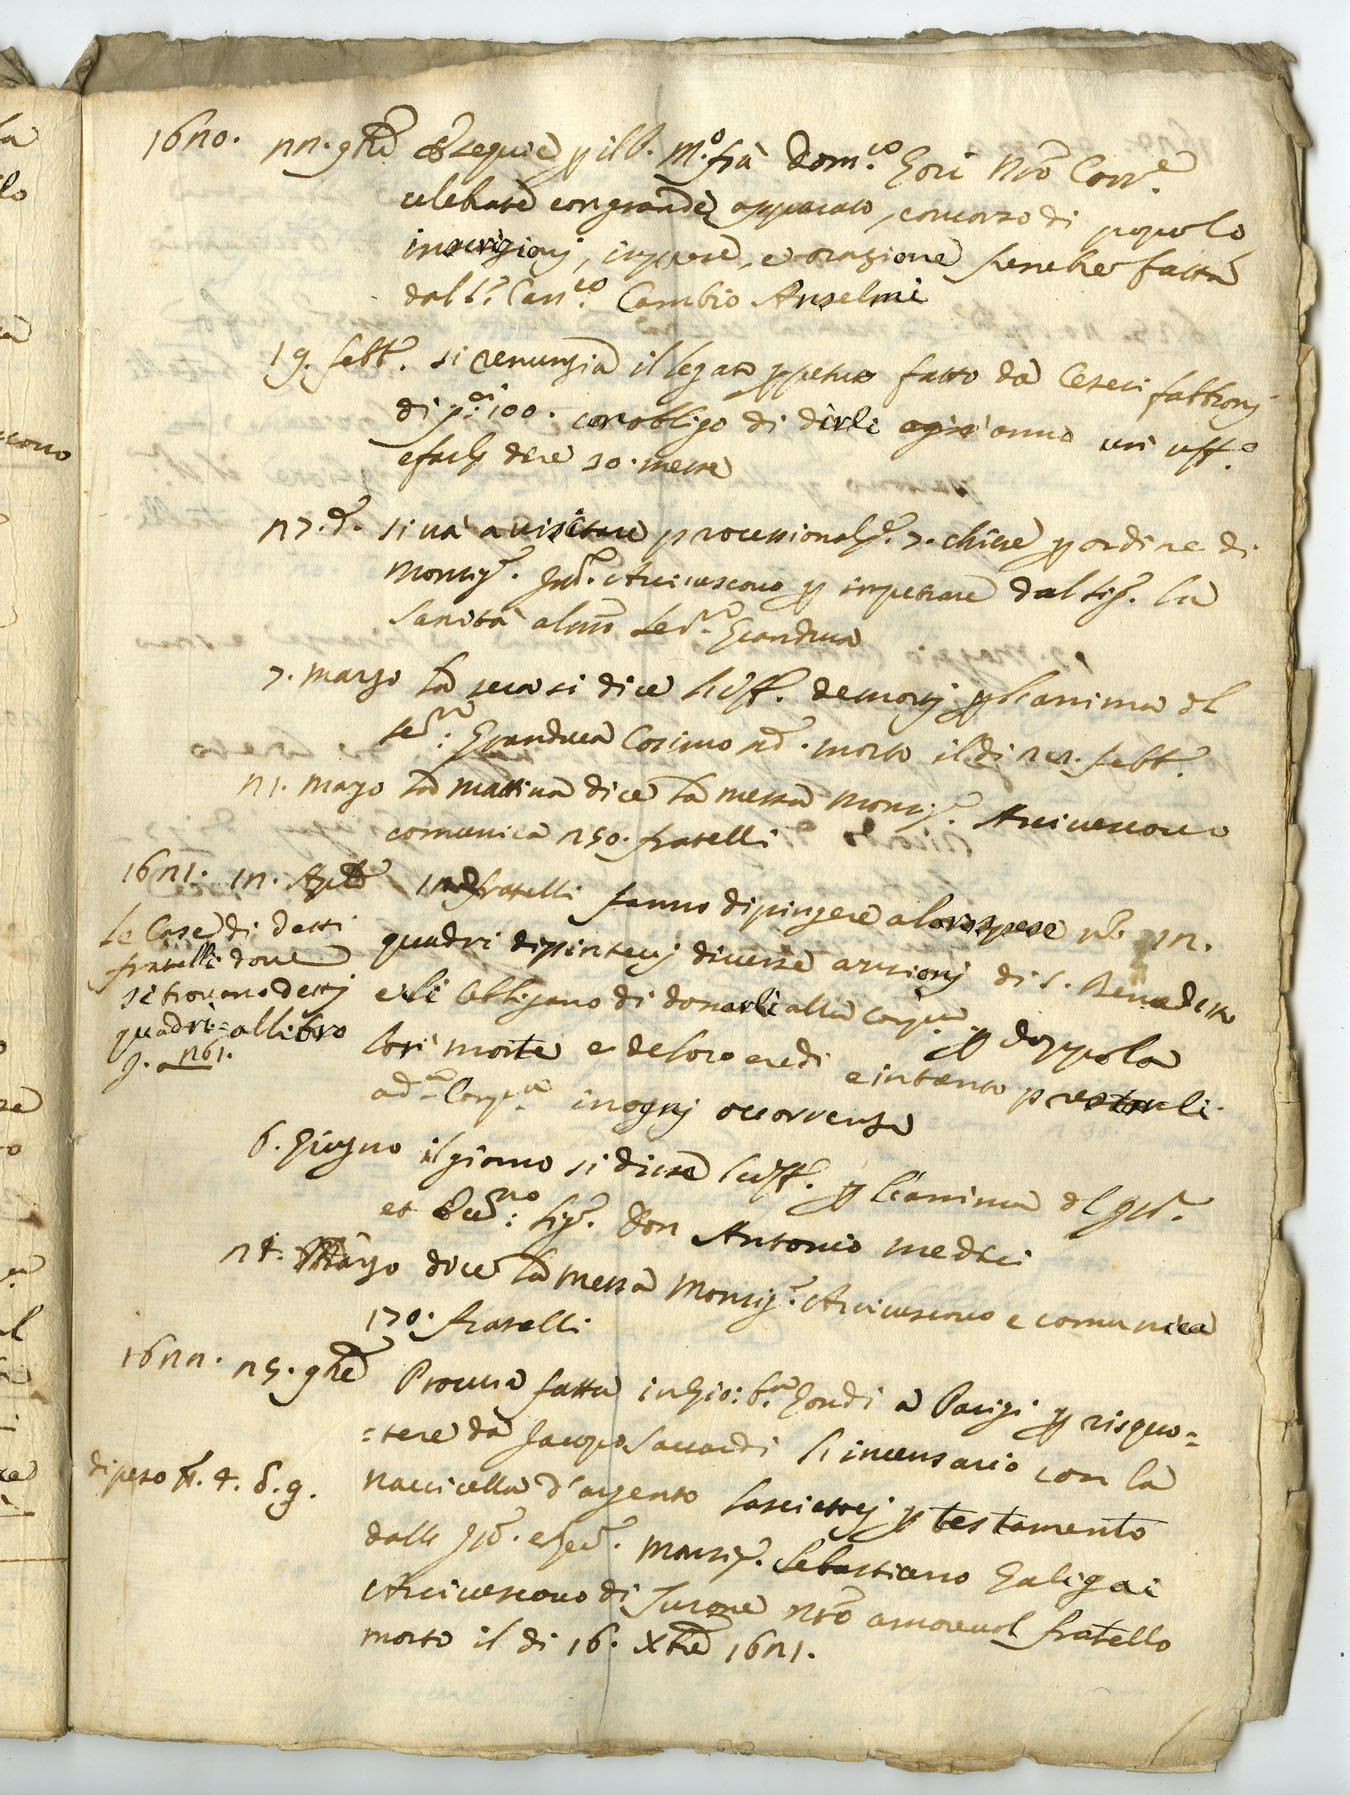 1620. 22. 9bre Essequie p il P. M.o fra Dom.co Gori Nro Corr.e
celebrate con grande apparato, concorso di popolo
inscrizioni, imprese, e orazione funebre fatta
dal S.r Can.co Cambio Anselmi
19. febb.o si renunzia il legato ppetuo fatto da Ceseri fabbronj
di p.di 100. con obligo di dirli ogni anno un uff.o
e farli dire 30. messe
27. d.o si va a visitare processionalm.e 7. chiese p ordine di
Monsig.r Ill.o Arcivescovo p impetrare dal Sig.r la
sanità al nro Ser.mo Granduca
7. marzo la sera si dice l'uff.o de morti p l'anima del
ser.mo Granduca Cosimo 2.do morto il dì 28. febb.o
21. marzo la mattina dice la messa Monsig.r Arcivescovo
comunica 250. fratelli
1621. 12. Aple 12 fratelli fanno dipingere a loro spese n.o 12.
quadri dipintovj diverse azzionj di S. Benedetto
e li obbligano di donarli alla Comp.a p doppo la
lori morte e de loro eredi e intanto prestarli
a d.a Comp.a in ognj occorrenza
Le Case di detti
fratelli dove
si trovano dettj
quadri = al libro
J. a 261.
6. Giugno il giorno si disse l'uff.o p l'anima del q Ill.mo
et Ecc.mo Sig.r Don Antonio medici
24. Marzo dice la messa Monsig.r Arcivescovo e comunica
170. fratelli
1622. 25. 9bre Procura fatta in Gio: b.a Gondi a Parigi p risquo=
=tere da Jacopo Saccardi l'incensario con la
naccicella d'argento lasciatoj p testamento
dall Ill.mo e Re.mo Monsig.r Sebastiano Galigai
Arcivescovo di Turone nro amorevol fratello
morto il dì 16. Xbre 1621.
di peso lb. 4. 8. 9.